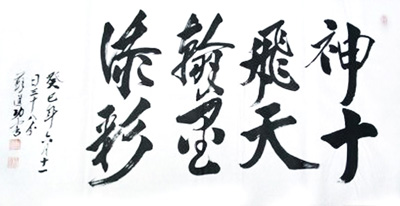 神十
飛天
翰墨
添彩
癸巳年六月十一
日二十八分